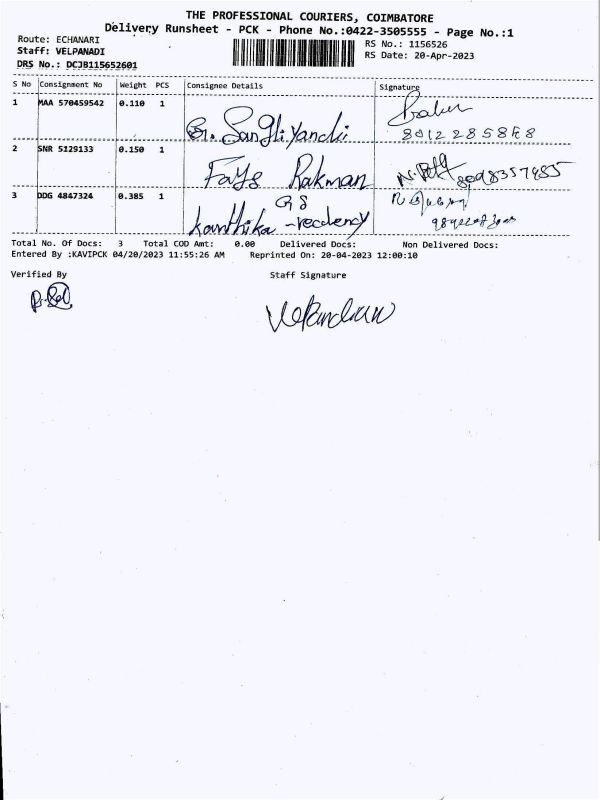 THE PROFESSIONAL COURIERS, COIMBATORE
Delivery Runsheet - PCK - Phone No.:0422-3505555 - Page No.:1
Route: ECHANARI
RS No.: 1156526
Staff: VELPANADI
RS Date: 20-Apr-2023
DRS No.: DCJB115652601
S No Consignment No Weight PCS Consignee Details Signature
1 MAA 570459542 0.110 1 G. Sangliyandi
2 SNR 5129133 0.150 1 Fays Rakman
3 DDG 4847324 0.385 1 G8
Total No. Of Docs: 3 Total COD Amt: 0.00 Delivered Docs: Non Delivered Docs:
Entered By :KAVIPCK 04/20/2023 11:55:26 AM Reprinted On: 20-04-2023 12:00:10
Verified By Staff Signature